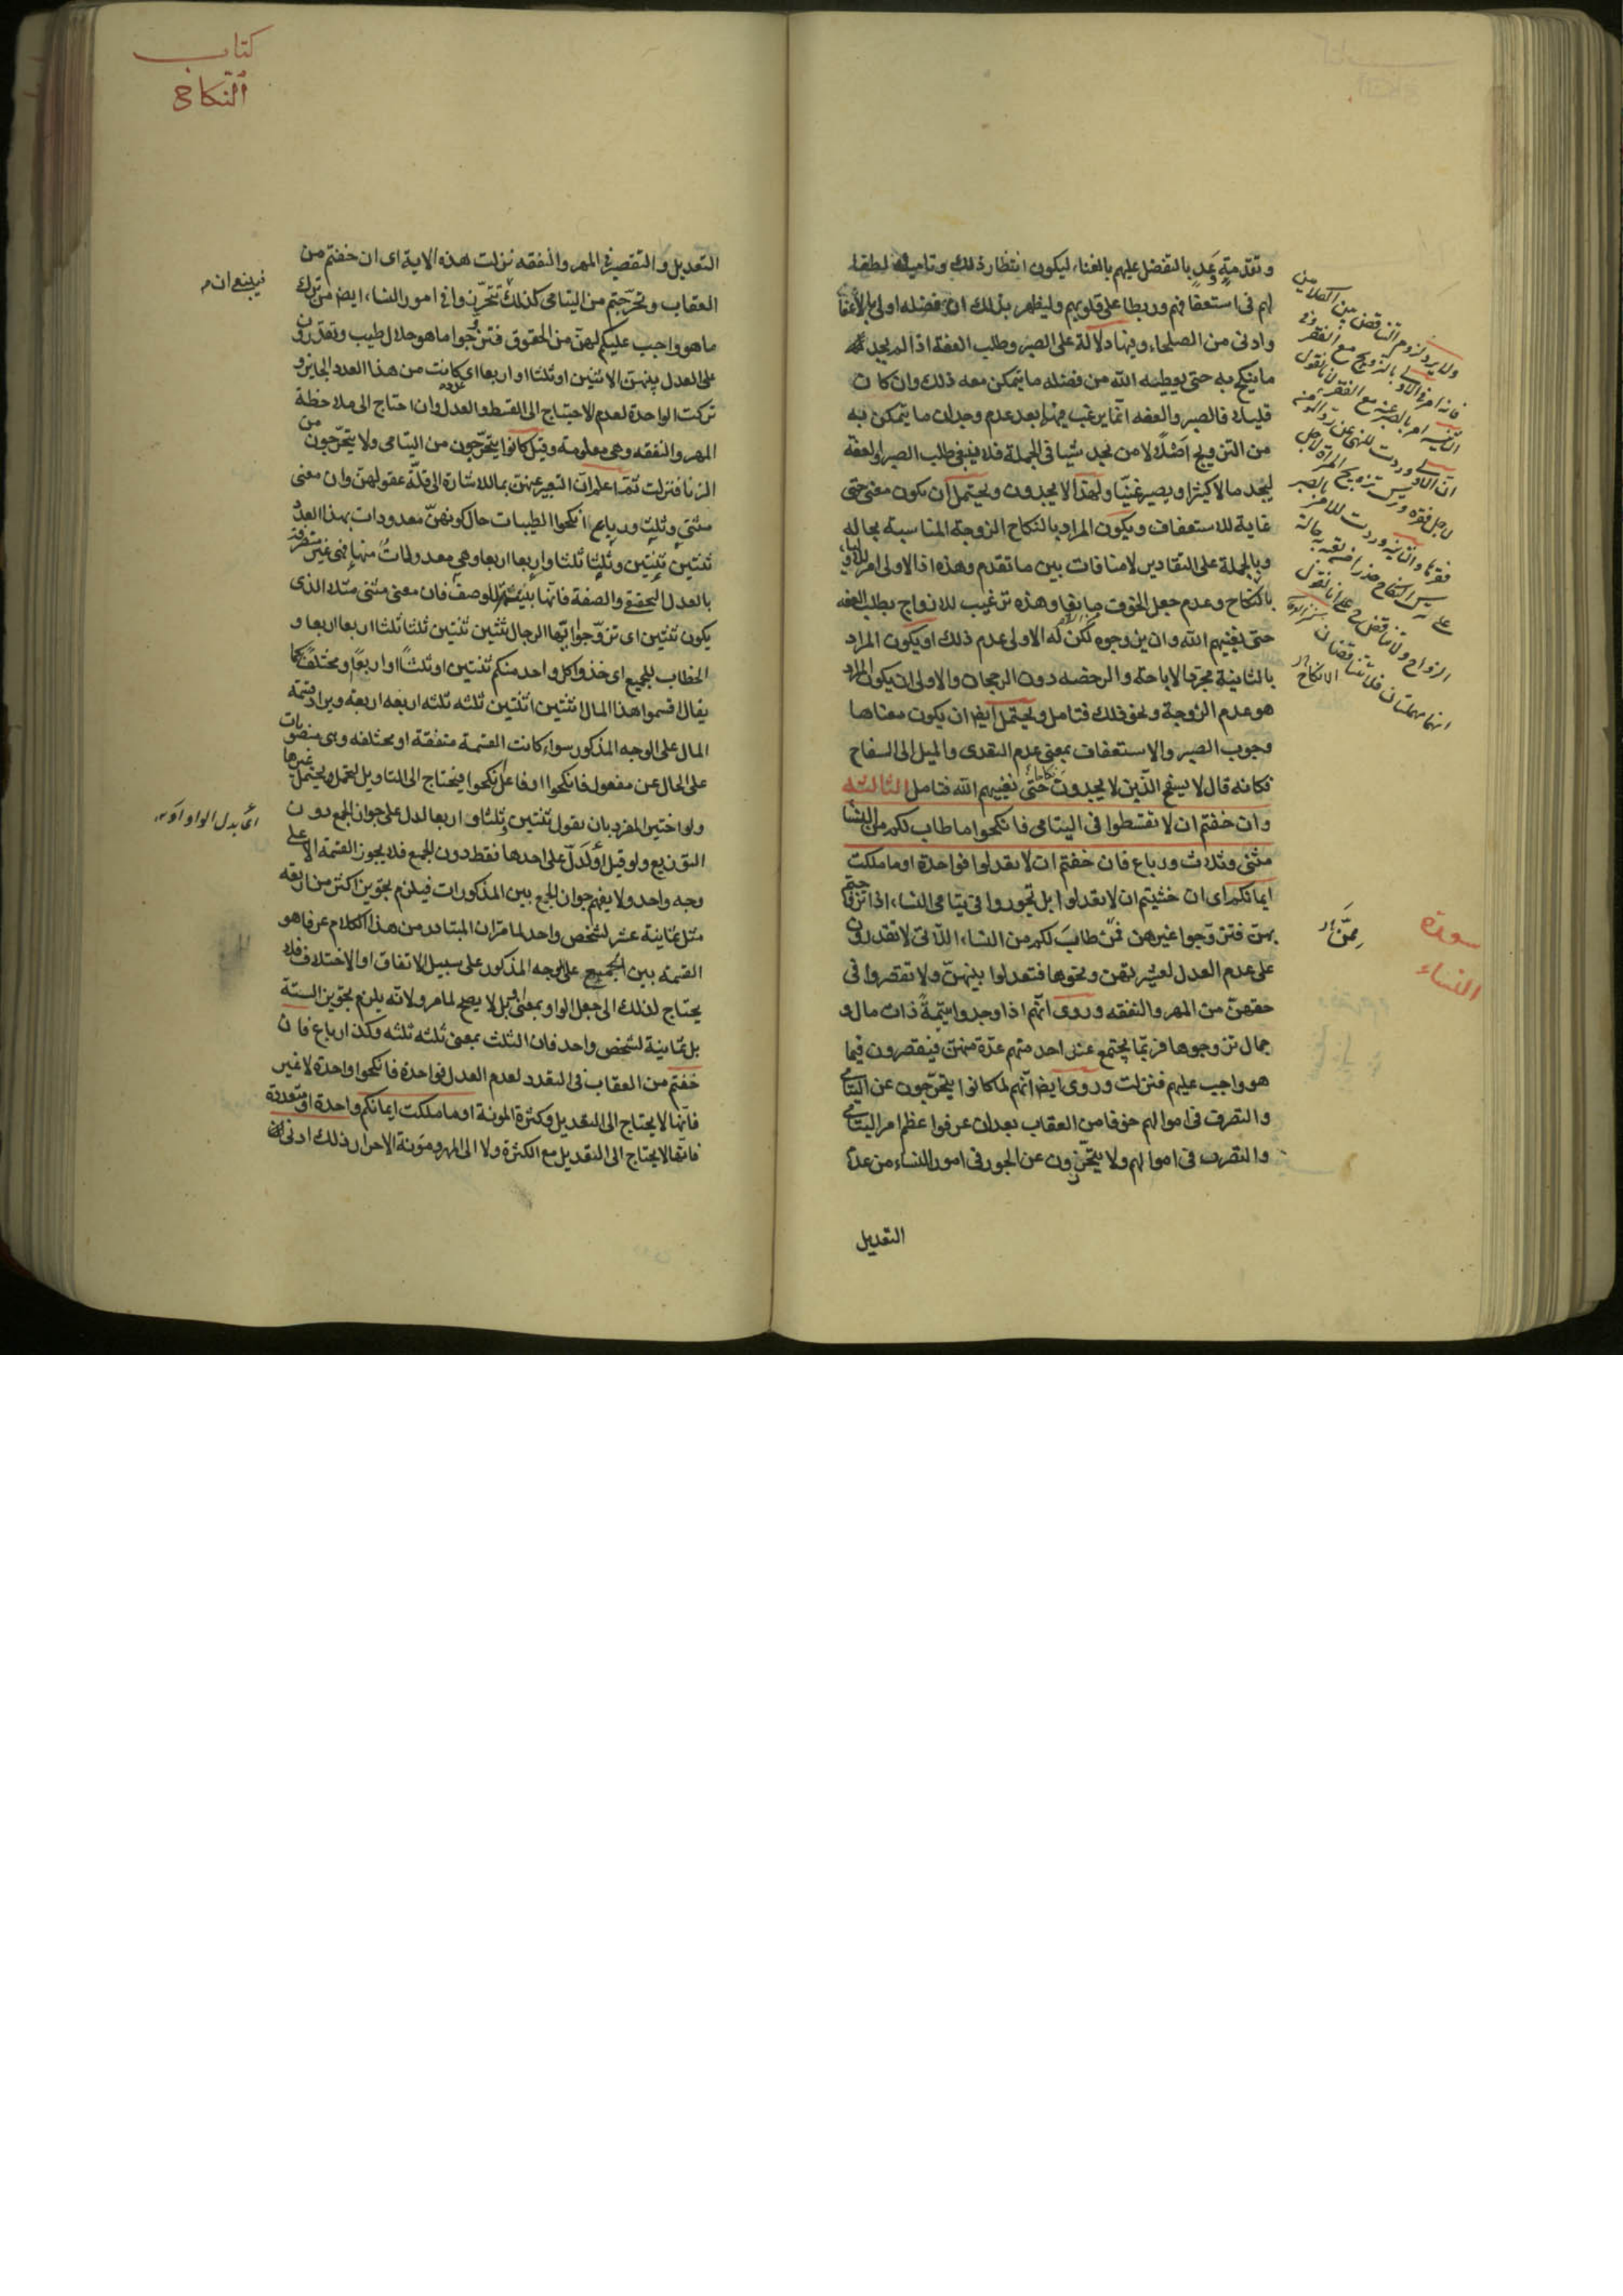 وتقدمة وعد بالتفضل عليهم بالغناء ليكون انتظار ذلك وتاميله لطفا
لهم فى استعفافهم وربطا على قلوبهم وليظهر بذلك ان فضله اولى بالاعفاء
وادنى من الصلحاء وفيها دلالة على الصبر وطلب العفة اذا لم يجد
ما ينكح به حتى يعطيه الله من فضله ما يتمكن معه ذلك وان كان
قليلا فالصبر والعفه انما يرغب فيها بعد عدم وجدان ما يتمكن به
من التزويج اصلا لا من يجد شيا فى الجملة فلا ينبغى طلب الصبر والعفة
ليجد مالا كثيرا ويصير غنيا ولهذا لا يجدون ويحتمل ان يكون معنى حتى
غاية للاستعفاف ويكون المراد بالنكاح الزوجة المناسبة بحاله
وبالجملة على التقادير لا منافات بين ما تقدم وهذه اذ الاولى امر للاولياء
بالنكاح وعدم جعل الخوف مانعا وهذه ترغيب للازواج بطلب العفه
حتى يغنيهم الله وان يزوجوه لكن له الاولى عدم ذلك او يكون المراد
بالثانية مجرد الاباحة والرخصه دون الرجحان والاولى ان يكون المراد
هو عدم الزوجة ونحو ذلك فتامل ويحتمل ايضا ان يكون معناها
وجوب الصبر والاستعفاف بمعنى عدم التعدى والميل الى السفاح
فكانه قال لا يسفح الذين لا يجدون نكاحا حتى يغنيهم الله فتامل الثالثه
وان خفتم ان لا تقسطوا فى اليتامى فانكحوا ما طاب لكم من النساء
مثنى وثلاث ورباع فان خفتم ان لا تعدلوا فواحدة او ما ملكت
ايمانكم اى ان خشيتم ان لا تعدلوا بل تجوروا فى يتامى النساء اذا تزوجتم
بهن فتزوجوا غيرهن فمن طاب لكم من النساء اللاتى لا تقدرون
على عدم العدل لعشيرتهن ونحوها فتعدلوا بينهن ولا تقصروا فى
حقهن من المهر والنفقه وروى انهم اذا وجدوا يتيمة ذات مال و
جمال تزوجوها فربما يجتمع عند احد منهم عدة منهن فيقصرون فيما
هو واجب عليهم فنزلت وروى ايضا انهم لما كانوا يتحرجون عن اليتامى
والتصرف فى اموالهم خوفا من العقاب بعد ان عرفوا عظم امر اليتامى
والتصرف فى اموالهم ولا يتحرزون عن الجور فى امور النساء من عدم
التعديل
ولا يرد لزوم التناقض بين الكلامين
فانه امر فى الاولى بالتزويج مع الفقر وفى
الثانيه امر بالصبر عنه مع الفقر لانا نقول
ان الاولى وردت للنهى عن رد المومن
لاجل فقره وترك تزويج المراة لاجل
فقرها والثانيه وردت للامر بالصبر
انهما مهملتان فلا تتناقضان
سورة
النساء
كتاب
النكاح
التعديل والتقصير فى المهر والنفقه نزلت هذه الاية اى ان خفتم من
العقاب وتحرجتم من اليتامى كذلك تتحرزوا فى امور النساء ايضا من ترك
ما هو واجب عليكم لهن من الحقوق فتزوجوا ما هو حلال طيب وتقدرون
على العدل بينهن الاثنين او ثلثا او اربعا اى كانت من هذا العدد الجايز و
تركت الواحدة لعدم الاحتياج الى القسط والعدل وان احتاج الى ملاحظة
المهر والنفقه وهى معلومة وقيل كانوا يتحرجون من اليتامى ولا يتحرجون من
الزنا فنزلت ثم اعلم ان التعبير عنهن بما للاشارة الى قلة عقولهن وان معنى
مثنى وثلث ورباع انكحوا الطيبات حال كونهن معدودات بهذا العدد
ثنتين ثنتين وثلثا ثلثا واربعا اربعا وهى معدولات منها فهى غير منصرفة
بالعدل التحقيقى والصفة فانها بنيت للوصف فان معنى مثنى مثلا الذى
يكون ثنتين اى تزوجوا ايها الرجال ثنتين ثنتين ثلثا ثلثا اربعا اربعا و
الخطاب للجميع اى خذوا كل واحد منكم ثنتين او ثلثا او اربعا ومختلفا كما
يقال اقسموا هذا المال اثنتين اثنتين ثلثه ثلثه اربعه اربعة ويراد قسمة
المال على الوجه المذكور سواء كانت القسمة متفقة او مختلفه وهى منصوبات
على الحال عن مفعول فانكحوا او فاعل نكحوا فيحتاج الى التاويل لعمل ويحتمل غيرها
ولو اختير المفرد بان يقول ثنتين وثلثا واربعا لدل على جواز الجمع دون
التوزيع ولو قيل او لدل على احدها فقط دون الجمع فلا يجوز القسمة الا على
وجه واحد ولا يفهم جواز الجمع بين المذكورات فيلزم تجويز اكثر من اربعه
مثل ثمانية عشر لشخص واحد لما مر ان المتبادر من هذا الكلام عرفا هو
القسمة بين الجميع على الوجه المذكور على سبيل الاتفاق او الاختلاف فلا
يحتاج لذلك الى جعل الواو بمعنى او بل لا يصح لما مر ولانه يلزم تجويز الستة
بل ثمانية لشخص واحد فان الثلث بمعنى ثلثه ثلثه وكذا رباع فان
خفتم من العقاب فى التعدد لعدم العدل فواحدة فانكحوا واحدة لا غير
فانها لا يحتاج الى التعديل وكثرة المونة او ما ملكت ايمانكم واحدة او متعددة
فانها لا يحتاج الى التعديل مع الكثرة ولا الى المهر ومونة الاحرار ذلك ادنى ان
فينبغى ان
اى بدل الواو او